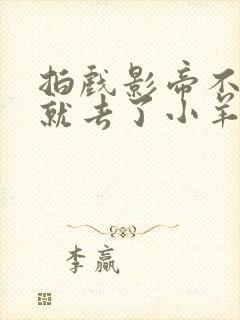 拍戏影帝不
就去了小羊
李赢